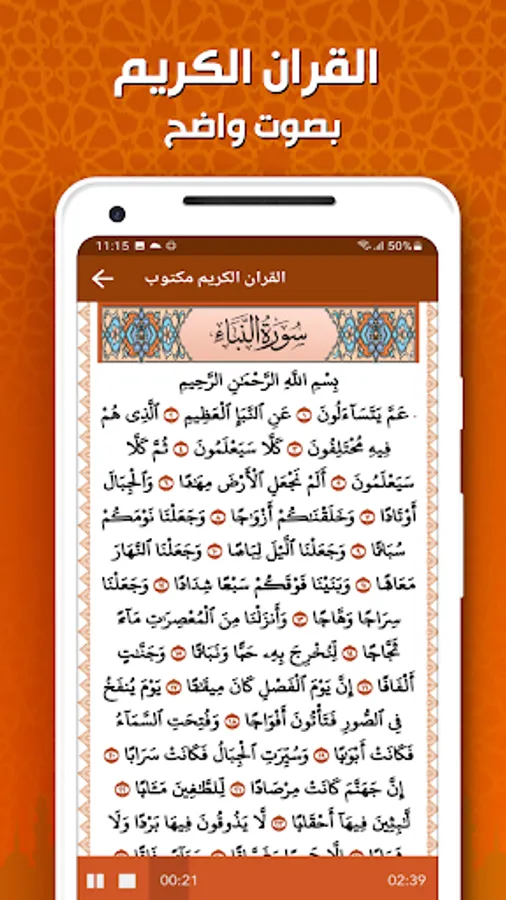 القران الكريم
بصوت واضح
11:15
50%
القران الكريم مكتوب
سُورَةُ النَّبَإِ
بِسْمِ اللَّهِ الرَّحْمَٰنِ الرَّحِيمِ
عَمَّ يَتَسَآءَلُونَ ١ عَنِ ٱلنَّبَإِ ٱلْعَظِيمِ ٢ ٱلَّذِى هُمْ
فِيهِ مُخْتَلِفُونَ ٣ كَلَّا سَيَعْلَمُونَ ٤ ثُمَّ كَلَّا
سَيَعْلَمُونَ ٥ أَلَمْ نَجْعَلِ ٱلْأَرْضَ مِهَٰدًا ٦ وَٱلْجِبَالَ
أَوْتَادًا ٧ وَخَلَقْنَٰكُمْ أَزْوَٰجًا ٨ وَجَعَلْنَا نَوْمَكُمْ
سُبَاتًا ٩ وَجَعَلْنَا ٱلَّيْلَ لِبَاسًا ١٠ وَجَعَلْنَا ٱلنَّهَارَ
مَعَاشًا ١١ وَبَنَيْنَا فَوْقَكُمْ سَبْعًا شِدَادًا ١٢ وَجَعَلْنَا
سِرَاجًا وَهَّاجًا ١٣ وَأَنزَلْنَا مِنَ ٱلْمُعْصِرَٰتِ مَآءً
ثَجَّاجًا ١٤ لِّنُخْرِجَ بِهِۦ حَبًّا وَنَبَاتًا ١٥ وَجَنَّٰتٍ
أَلْفَافًا ١٦ إِنَّ يَوْمَ ٱلْفَصْلِ كَانَ مِيقَٰتًا ١٧ يَوْمَ يُنفَخُ
فِى ٱلصُّورِ فَتَأْتُونَ أَفْوَاجًا ١٨ وَفُتِحَتِ ٱلسَّمَآءُ
فَكَانَتْ أَبْوَٰبًا ١٩ وَسُيِّرَتِ ٱلْجِبَالُ فَكَانَتْ سَرَابًا ٢٠
إِنَّ جَهَنَّمَ كَانَتْ مِرْصَادًا ٢١ لِّلطَّٰغِينَ مَـَٔابًا ٢٢
لَّٰبِثِينَ فِيهَآ أَحْقَابًا ٢٣ لَّا يَذُوقُونَ فِيهَا بَرْدًا وَلَا
00:21
02:39